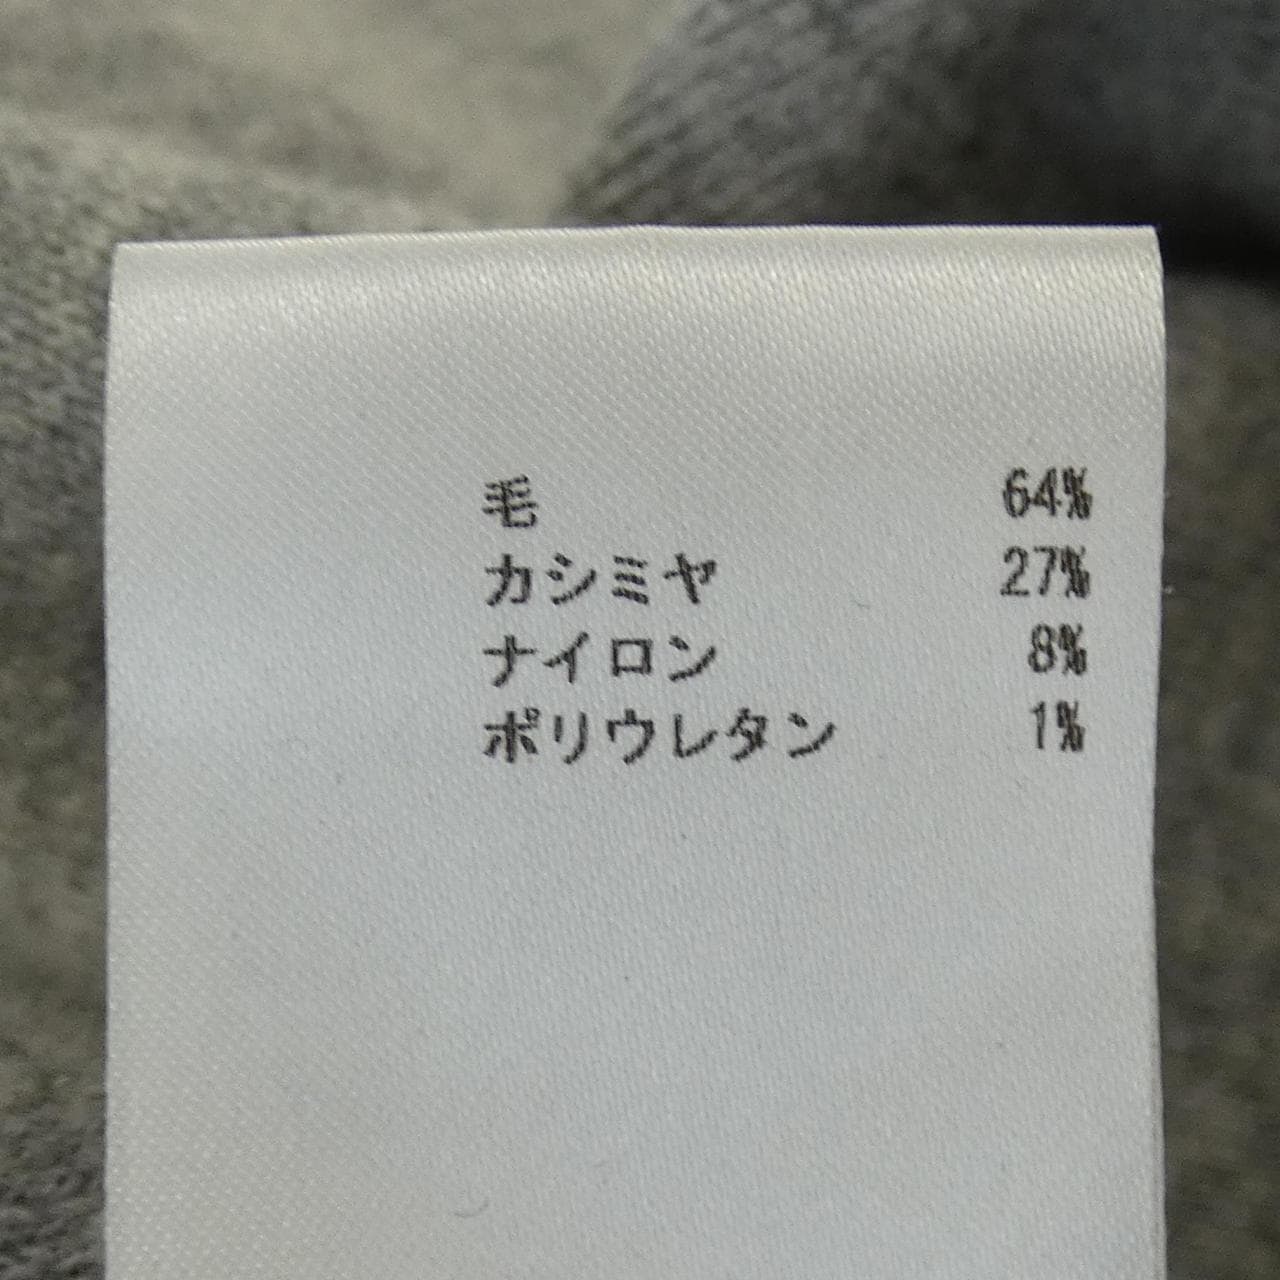 毛 64%
カシミヤ 27%
ナイロン 8%
ポリウレタン 1%